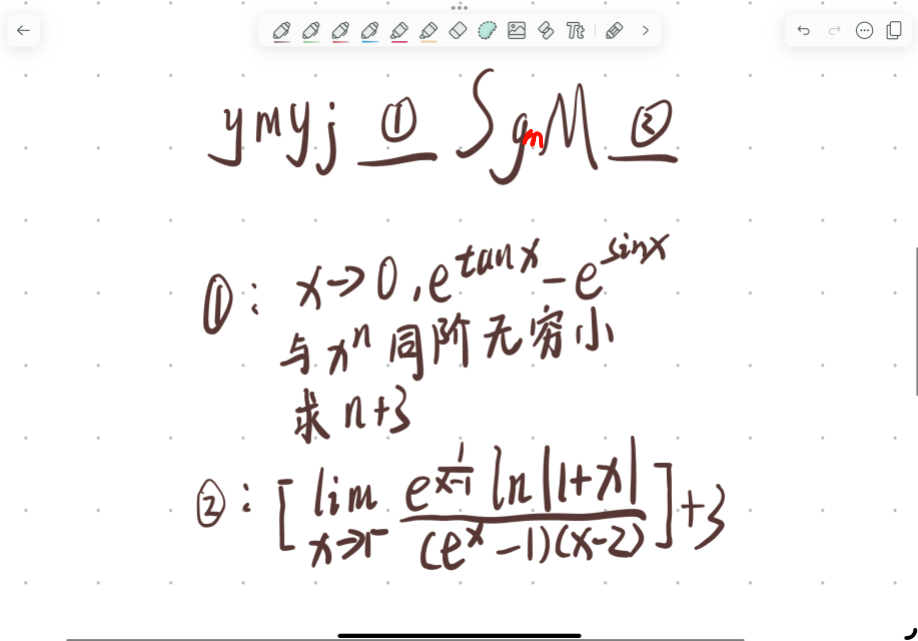 Tt
ymyj ① SgmM ②
①: x→0, e^{tanx} - e^{sinx}
与 x^n 同阶无穷小
求 n+3
②: [lim_{x→1^-} \frac{e^{\frac{1}{x-1}} ln|1+x|}{(e^x-1)(x-2)}]+3